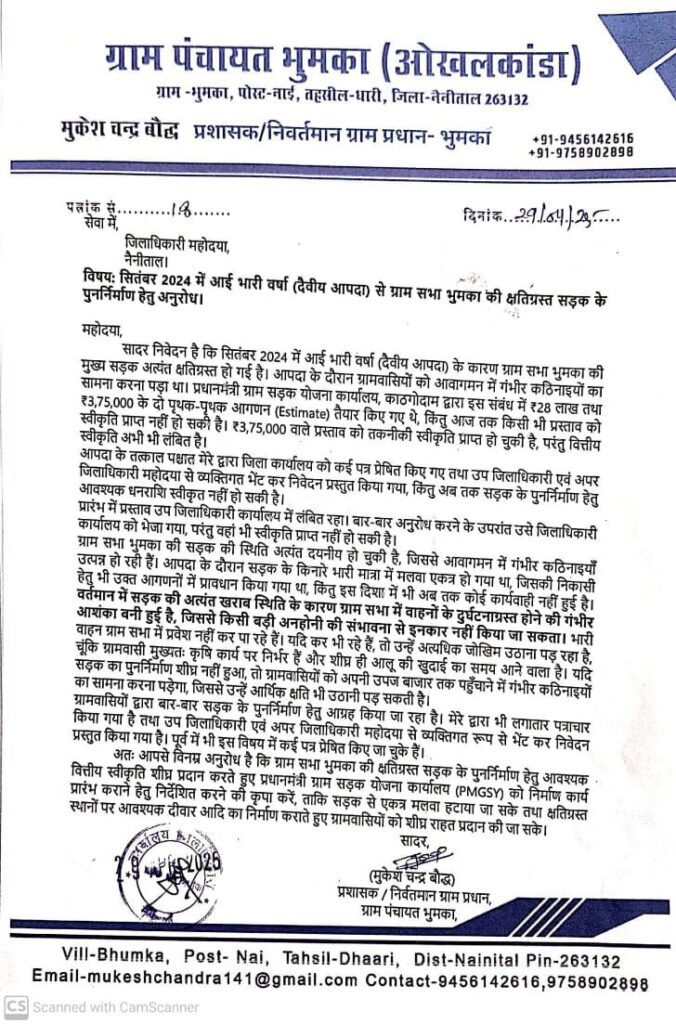 ग्राम पंचायत भुमका (ओखलकांडा)
ग्राम -भुमका, पोस्ट-नाई, तहसील-धारी, जिला-नैनीताल 263132
मुकेश चन्द्र बौद्ध प्रशासक/निवर्तमान ग्राम प्रधान- भुमका
+91-9456142616
+91-9758902898
पत्रांक सं..........18.......
दिनांक...29/04/25.....
सेवा में,
जिलाधिकारी महोदया,
नैनीताल।
विषय: सितंबर 2024 में आई भारी वर्षा (दैवीय आपदा) से ग्राम सभा भुमका की क्षतिग्रस्त सड़क के
पुनर्निर्माण हेतु अनुरोध।
महोदया,
सादर निवेदन है कि सितंबर 2024 में आई भारी वर्षा (दैवीय आपदा) के कारण ग्राम सभा भुमका की
मुख्य सड़क अत्यंत क्षतिग्रस्त हो गई है। आपदा के दौरान ग्रामवासियों को आवागमन में गंभीर कठिनाइयों का
सामना करना पड़ा था। प्रधानमंत्री ग्राम सड़क योजना कार्यालय, काठगोदाम द्वारा इस संबंध में ₹28 लाख तथा
₹3,75,000 के दो पृथक-पृथक आगणन (Estimate) तैयार किए गए थे, किंतु आज तक किसी भी प्रस्ताव को
स्वीकृति प्राप्त नहीं हो सकी है। ₹3,75,000 वाले प्रस्ताव को तकनीकी स्वीकृति प्राप्त हो चुकी है, परंतु वित्तीय
स्वीकृति अभी भी लंबित है।
आपदा के तत्काल पश्चात मेरे द्वारा जिला कार्यालय को कई पत्र प्रेषित किए गए तथा उप जिलाधिकारी एवं अपर
जिलाधिकारी महोदया से व्यक्तिगत भेंट कर निवेदन प्रस्तुत किया गया, किंतु अब तक सड़क के पुनर्निर्माण हेतु
आवश्यक धनराशि स्वीकृत नहीं हो सकी है।
प्रारंभ में प्रस्ताव उप जिलाधिकारी कार्यालय में लंबित रहा। बार-बार अनुरोध करने के उपरांत उसे जिलाधिकारी
कार्यालय को भेजा गया, परंतु वहां भी स्वीकृति प्राप्त नहीं हो सकी है।
ग्राम सभा भुमका की सड़क की स्थिति अत्यंत दयनीय हो चुकी है, जिससे आवागमन में गंभीर कठिनाइयाँ
उत्पन्न हो रही हैं। आपदा के दौरान सड़क के किनारे भारी मात्रा में मलवा एकत्र हो गया था, जिसकी निकासी
हेतु भी उक्त आगणनों में प्रावधान किया गया था, किंतु इस दिशा में भी अब तक कोई कार्यवाही नहीं हुई है।
वर्तमान में सड़क की अत्यंत खराब स्थिति के कारण ग्राम सभा में वाहनों के दुर्घटनाग्रस्त होने की गंभीर
आशंका बनी हुई है, जिससे किसी बड़ी अनहोनी की संभावना से इनकार नहीं किया जा सकता। भारी
वाहन ग्राम सभा में प्रवेश नहीं कर पा रहे हैं। यदि कर भी रहे हैं, तो उन्हें अत्यधिक जोखिम उठाना पड़ रहा है,
चूंकि ग्रामवासी मुख्यतः कृषि कार्य पर निर्भर हैं और शीघ्र ही आलू की खुदाई का समय आने वाला है। यदि
सड़क का पुनर्निर्माण शीघ्र नहीं हुआ, तो ग्रामवासियों को अपनी उपज बाजार तक पहुँचाने में गंभीर कठिनाइयों
का सामना करना पड़ेगा, जिससे उन्हें आर्थिक क्षति भी उठानी पड़ सकती है।
ग्रामवासियों द्वारा बार-बार सड़क के पुनर्निर्माण हेतु आग्रह किया जा रहा है। मेरे द्वारा भी लगातार पत्राचार
किया गया है तथा उप जिलाधिकारी एवं अपर जिलाधिकारी महोदया से व्यक्तिगत रूप से भेंट कर निवेदन
प्रस्तुत किया गया है। पूर्व में भी इस विषय में कई पत्र प्रेषित किए जा चुके हैं।
अतः आपसे विनम्र अनुरोध है कि ग्राम सभा भुमका की क्षतिग्रस्त सड़क के पुनर्निर्माण हेतु आवश्यक
वित्तीय स्वीकृति शीघ्र प्रदान करते हुए प्रधानमंत्री ग्राम सड़क योजना कार्यालय (PMGSY) को निर्माण कार्य
प्रारंभ कराने हेतु निर्देशित करने की कृपा करें, ताकि सड़क से एकत्र मलवा हटाया जा सके तथा क्षतिग्रस्त
स्थानों पर आवश्यक दीवार आदि का निर्माण कराते हुए ग्रामवासियों को शीघ्र राहत प्रदान की जा सके।
सादर,
(मुकेश चन्द्र बौद्ध)
प्रशासक / निर्वतमान ग्राम प्रधान,
ग्राम पंचायत भुमका,
2025
Vill-Bhumka, Post- Nai, Tahsil-Dhaari, Dist-Nainital Pin-263132
Email-mukeshchandra141@gmail.com Contact-9456142616,9758902898
CS Scanned with CamScanner